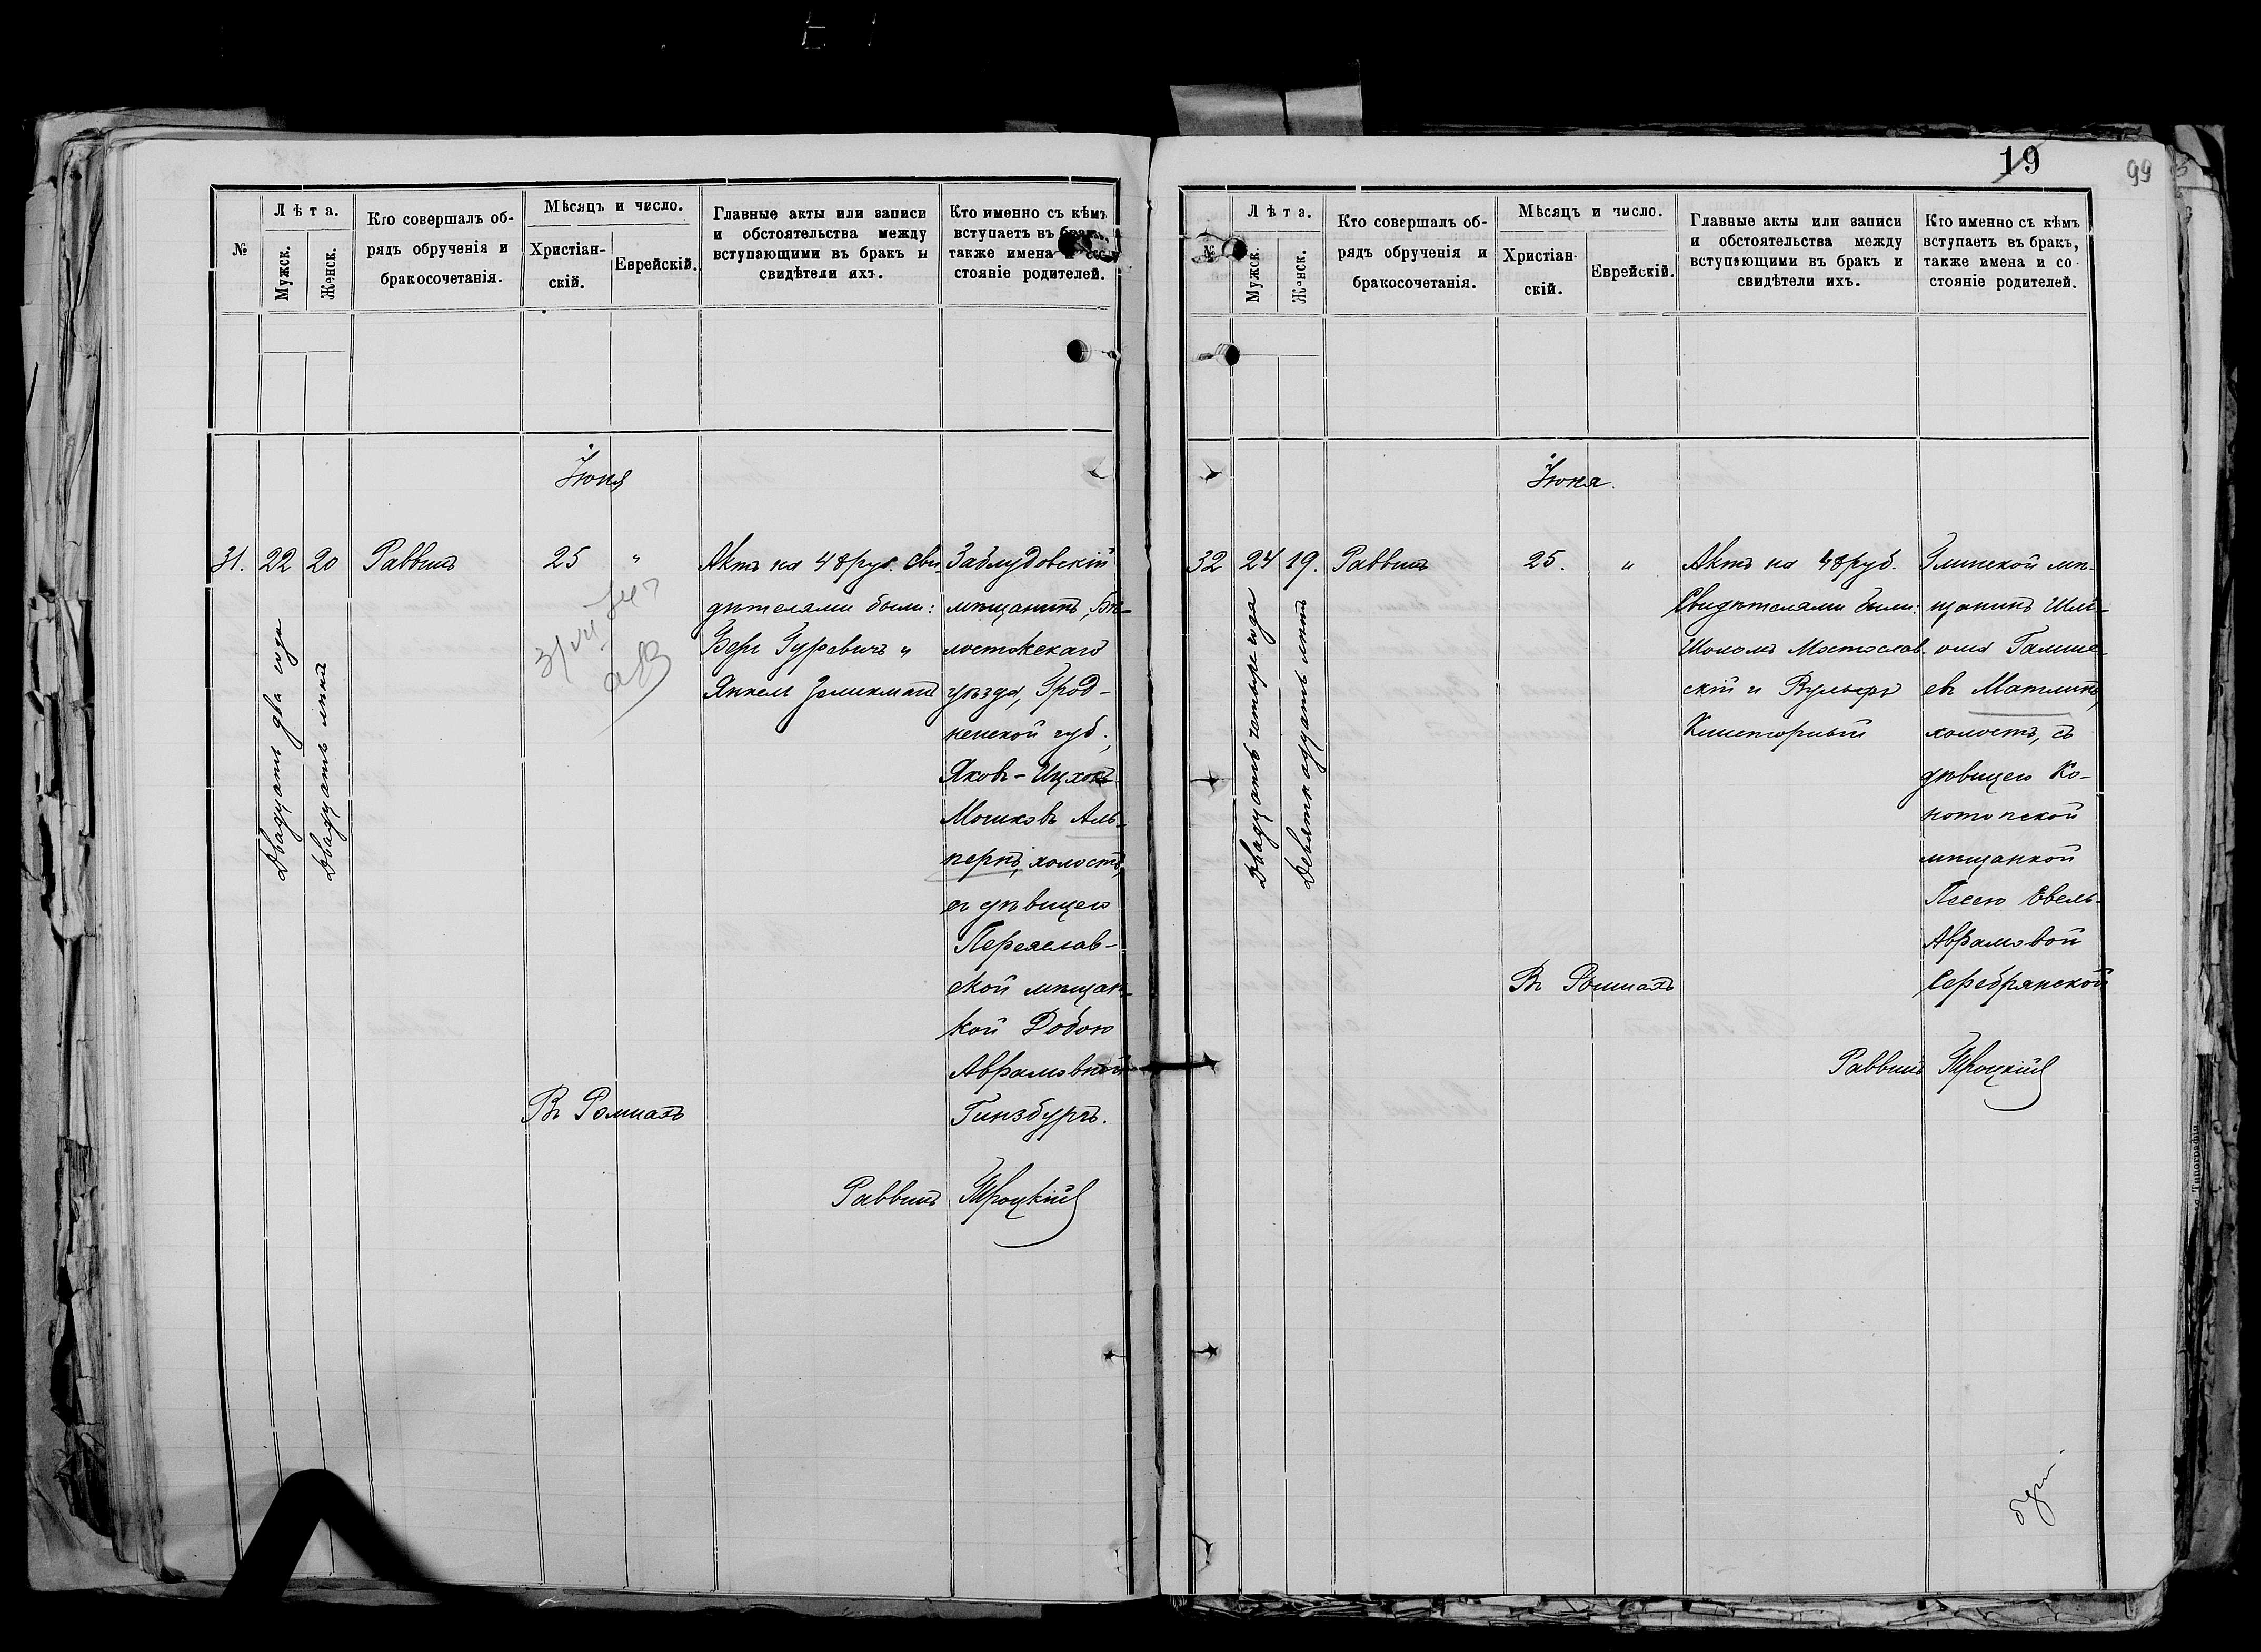 №
Лѣта.
Мужск.
Женск.
Кто совершалъ об-
рядъ обрученія и
бракосочетанія.
Мѣсяцъ и число.
Христіан-
скій.
Еврейскій.
Главные акты или записи
и обстоятельства между
вступающими въ бракъ и
свидѣтели ихъ.
Кто именно съ кѣмъ
вступаетъ въ
также имена
стояніе родителей.
Іюня
31.
22
Двадцать два года
20
Двадцать лѣтъ
Раввинъ
25
"
Актъ на 48 руб. Сви-
дѣтелями были:
Беръ Гуревичъ и
Янкель
Заблудовскій
мѣщанинъ, Бѣ-
лостокскаго
уѣзда, Грод-
ненской губ.,
Яковъ-Ицхокъ
Мошковъ Аль-
пернъ, холостъ,
съ дѣвицею
Переяслав-
ской мѣщан-
кой Добою
Аврамовной
Гинзбургъ.
Въ Ромнахъ
Раввинъ Троцкій
19
99
№
Лѣта.
Мужск.
Женск.
Кто совершалъ об-
рядъ обрученія и
бракосочетанія.
Мѣсяцъ и число.
Христіан-
скій.
Еврейскій.
Главные акты или записи
и обстоятельства между
вступающими въ бракъ и
свидѣтели ихъ.
Кто именно съ кѣмъ
вступаетъ въ бракъ,
также имена и со-
стояніе родителей.
Іюня.
32
24
Двадцать четыре года
19.
Девятнадцать лѣтъ
Раввинъ
25.
"
Актъ на 48 руб.
Свидѣтелями были:
Шоломъ Мостослав-
скій и Вульфъ
Глинской мѣ-
щанинъ Шлі-
ома
евъ Матлинъ,
холостъ, съ
дѣвицею Ко-
нотопской
мѣщанкой
Песею Евель-
Аврамовой
Серебрянской
Въ Ромнахъ
Раввинъ Троцкій